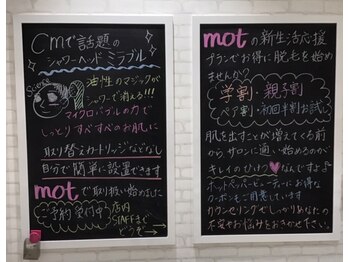 Cmで話題の
シャワーヘッドミラブル
油性のマジックが
シャワーで消える!!!
マイクロバブルの力で
しっとりすべすべのお肌に
取り替えカートリッジなどなし
自分で簡単に設置できます
motで取り扱い始めました
ご予約受付中
店内
STAFFまで
どうぞ→
motの新生活応援
プランでお得に脱毛を始め
ませんか?
学割・親子割
ペア割・初回半割お試し
肌を出すことが増えてくる前
からサロンに通い始めるのが
キレイのひけつ♥なんですよ♪
ホットペッパービューティーにお得な
クーポンもご用意しています
カウンセリングでしっかりあなたの
不安やお悩みをおきかせ下さい